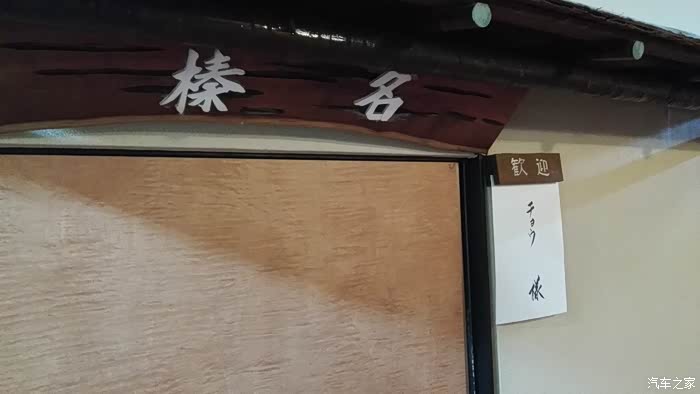 榛名
歓迎
チョウ 様
汽车之家